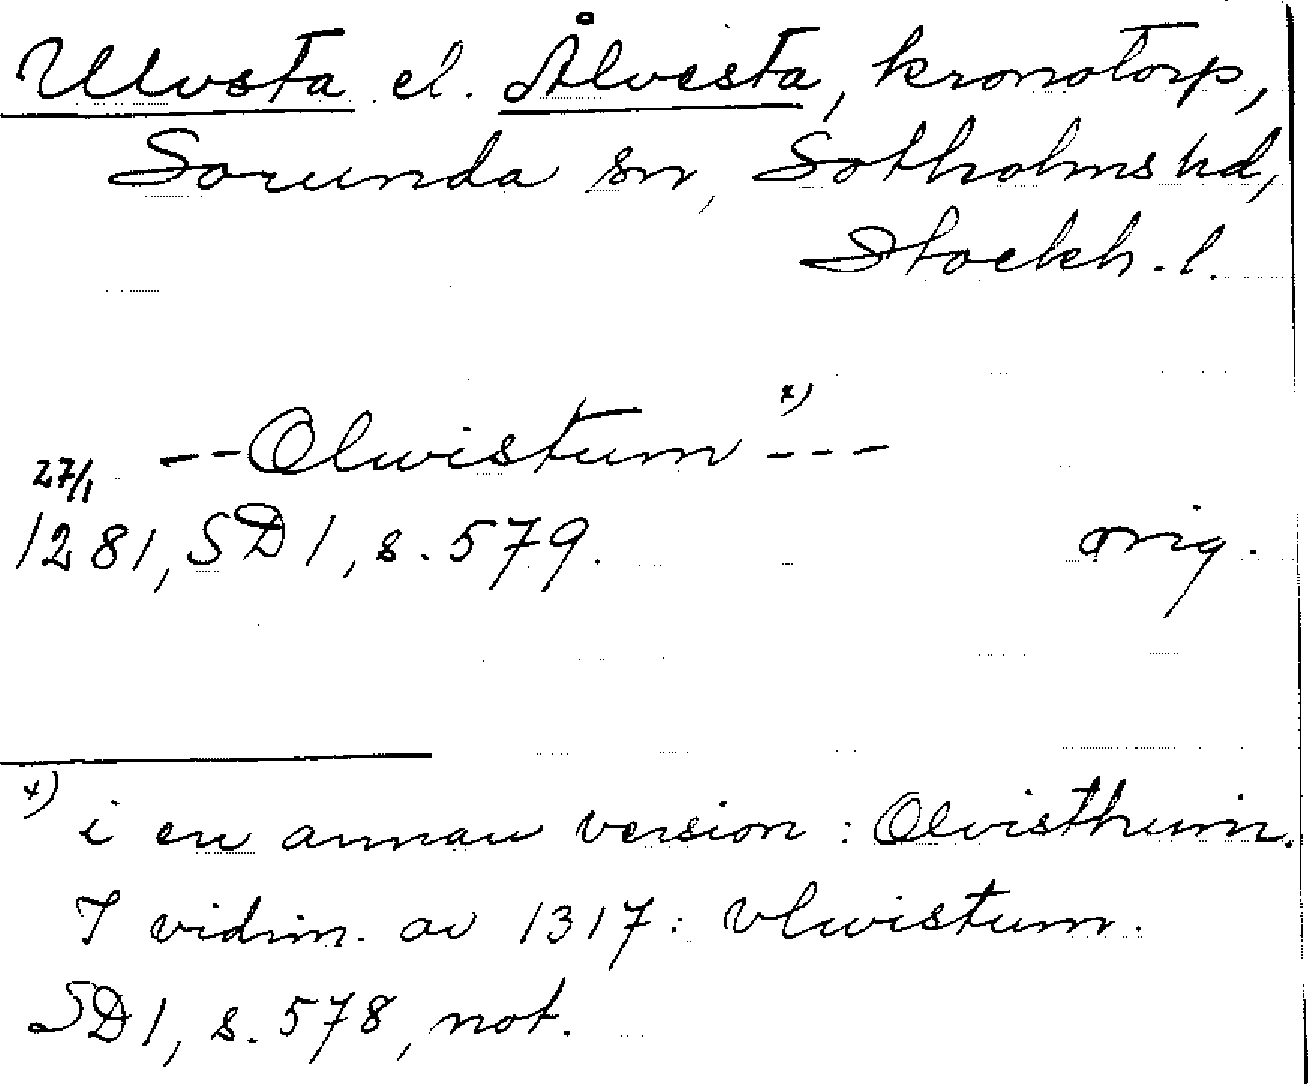 Ulvsta el. Ålvesta, kronotorp,
Sorunda sn, Sotholms hd,
Stockh. l.
-- Olwistum x) ---
27/1
1281, SD 1, s. 579. orig.
x) i en annan version: Olvisthum.
I vidim. av 1317: vlwistum.
SD 1, s. 578, not.